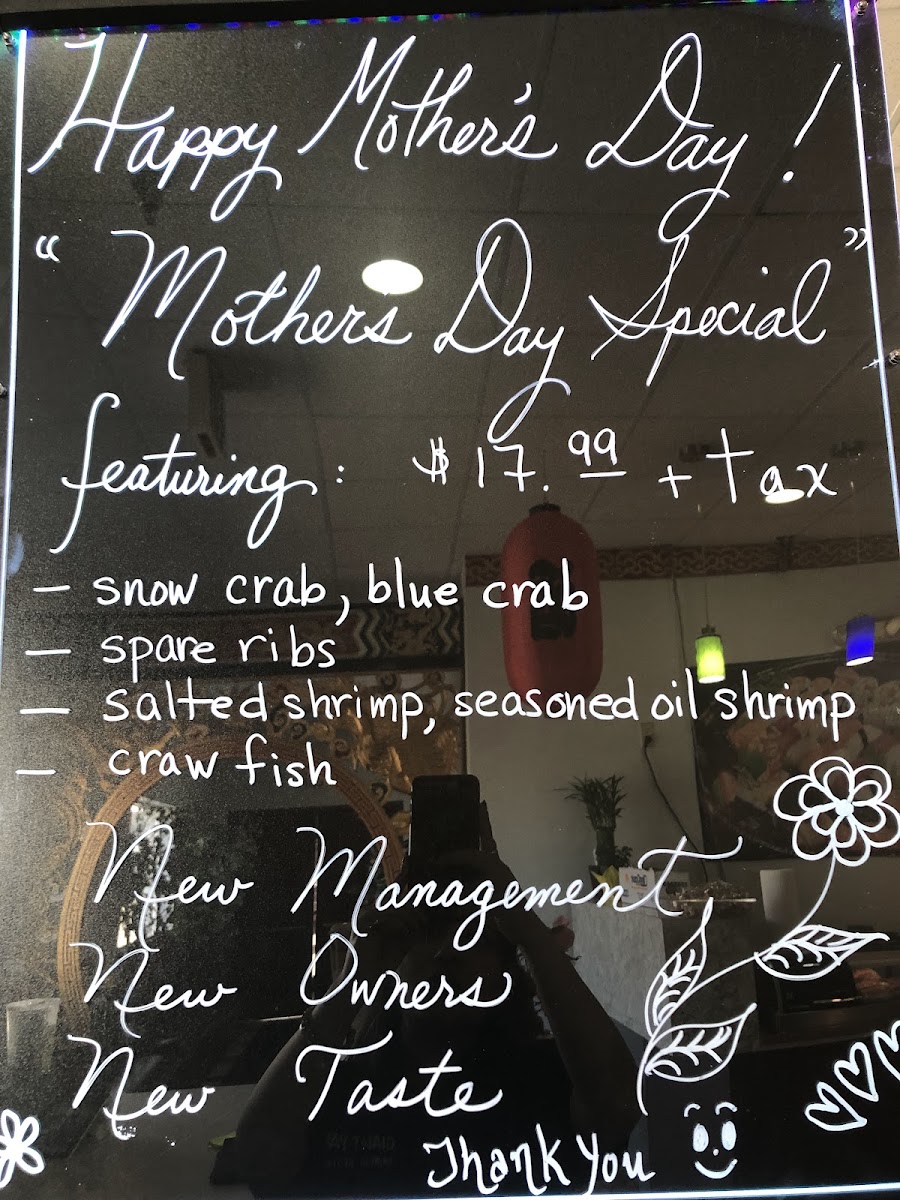 Happy Mother's Day!
"Mothers Day Special"
featuring: $17.99 + tax
- snow crab, blue crab
- spare ribs
- salted shrimp, seasoned oil shrimp
- craw fish
New Management
New Owners
New Taste
Thank you